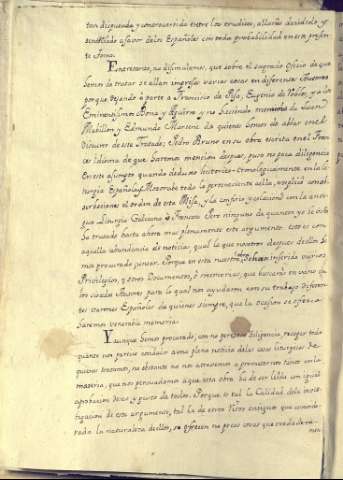 tan disputada y controvertida entre los eruditos, allarás decidido, y
sentenciado a favor de los Españoles con toda probabilidad en este presen-
te Tomo.
Entretanto, no disimulemos, que sobre el sagrado Oficio de que
hemos de tratar se allan impresas varias cosas en diferentes Autores
porque dejando à parte a Francisco de Pisa, Eugenio de Robles, y a los
Eminentisimos Bona y Aguirre y no haciendo memoria de Juan
Mabillon y Edmundo Martene de quienes hemos de ablar en el
Discurso de este Tratado; Pedro Bruno en su obra escrita en el Fran-
ces Idioma de que haremos mencion despues, puso no poca diligencia
en este asumpto quando dedujo historico-cronologicamente en la Li-
turgia Española y Mozarabe todo lo perteneciente a ella, y esplicó con ob-
servaciones el orden de esta Misa, y la confirió y cotejó con la anti-
gua Liturgia Galicana ò Francesa. Pero ninguno de quantos yo he visto
ha tratado hasta ahora mas plenamente este argumento, esto es con
aquella abundancia de noticias, qual la que nosotros despues de ellos he-
mos procurado juntar. Porque en esta nuestra obra se hallan inseridos varios
Privilegios, y otros Documentos, ò memorias, que buscarás en vano en
los citados Autores para lo qual nos ayudaron con su trabajo diferen-
tes varones Españoles de quienes siempre, que la ocasion se ofrezca
haremos venerable memoria.
Y aunque hemos procurado, con no pequeña diligencia, recoger todo
quanto nos parecia conducir a una plena noticia de las cosas liturgicas de
quienes tratamos, no obstante no nos atrevemos a prometernos tanto en la
materia, que nos persuadamos à que esta obra ha de ser leida con igual
aprobacion de
y gusto de todos. Porque es tal la Calidad de la inves-
tigacion de este argumento, tal la de otros Ritos antiguos que conside-
rada la naturaleza de ellos, se ofrecen no pocas cosas que